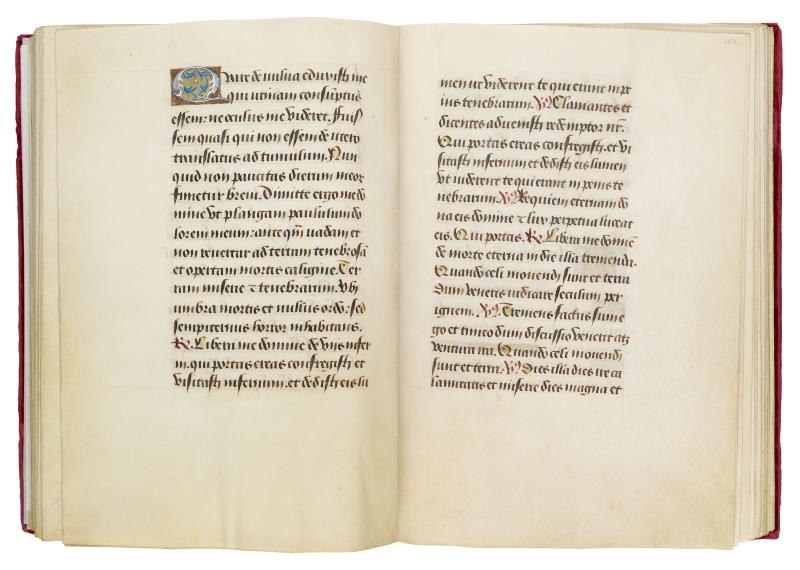 Quare de vulva eduxisti me
qui utinam consumptus
essem: ne oculus me videret. fuis
sem quasi qui non essem de utero
translatus ad tumulum. Nun
quid non paucitas dierum meorum
finietur brevi. Dimitte ergo me do
mine ut plangam paululum do
lorem meum: antequam vadam et
non revertar ad terram tenebrosam
et opertam mortis caligine. Ter
ram miserie et tenebrarum. Ubi
umbra mortis et nullus ordo: sed
sempiternus horror inhabitans.
R. Libera me domine de viis infer
ni. qui portas ereas confregisti et
visitasti infernum. et dedisti eis lu
men ut viderent te qui erant in pe
nis tenebrarum. V. Clamantes et
dicentes advenisti redemptor nr.
Qui portas ereas confregisti. et vi
sitasti infernum et dedisti eis lumen
Ut viderent te qui erant in penis te
nebrarum. V. Requiem eternam do
na eis domine et lux perpetua luceat
eis. Qui portas. R. Libera me domine
de morte eterna in die illa tremenda.
Quando celi movendi sunt et terra
Dum veneris iudicare seculum per
ignem. V. Tremens factus sum e
go et timeo dum discussio venerit atque
ventura ira. Quando celi movendi
sunt et terra. V. Dies illa dies ire ca
lamitatis et miserie dies magna et